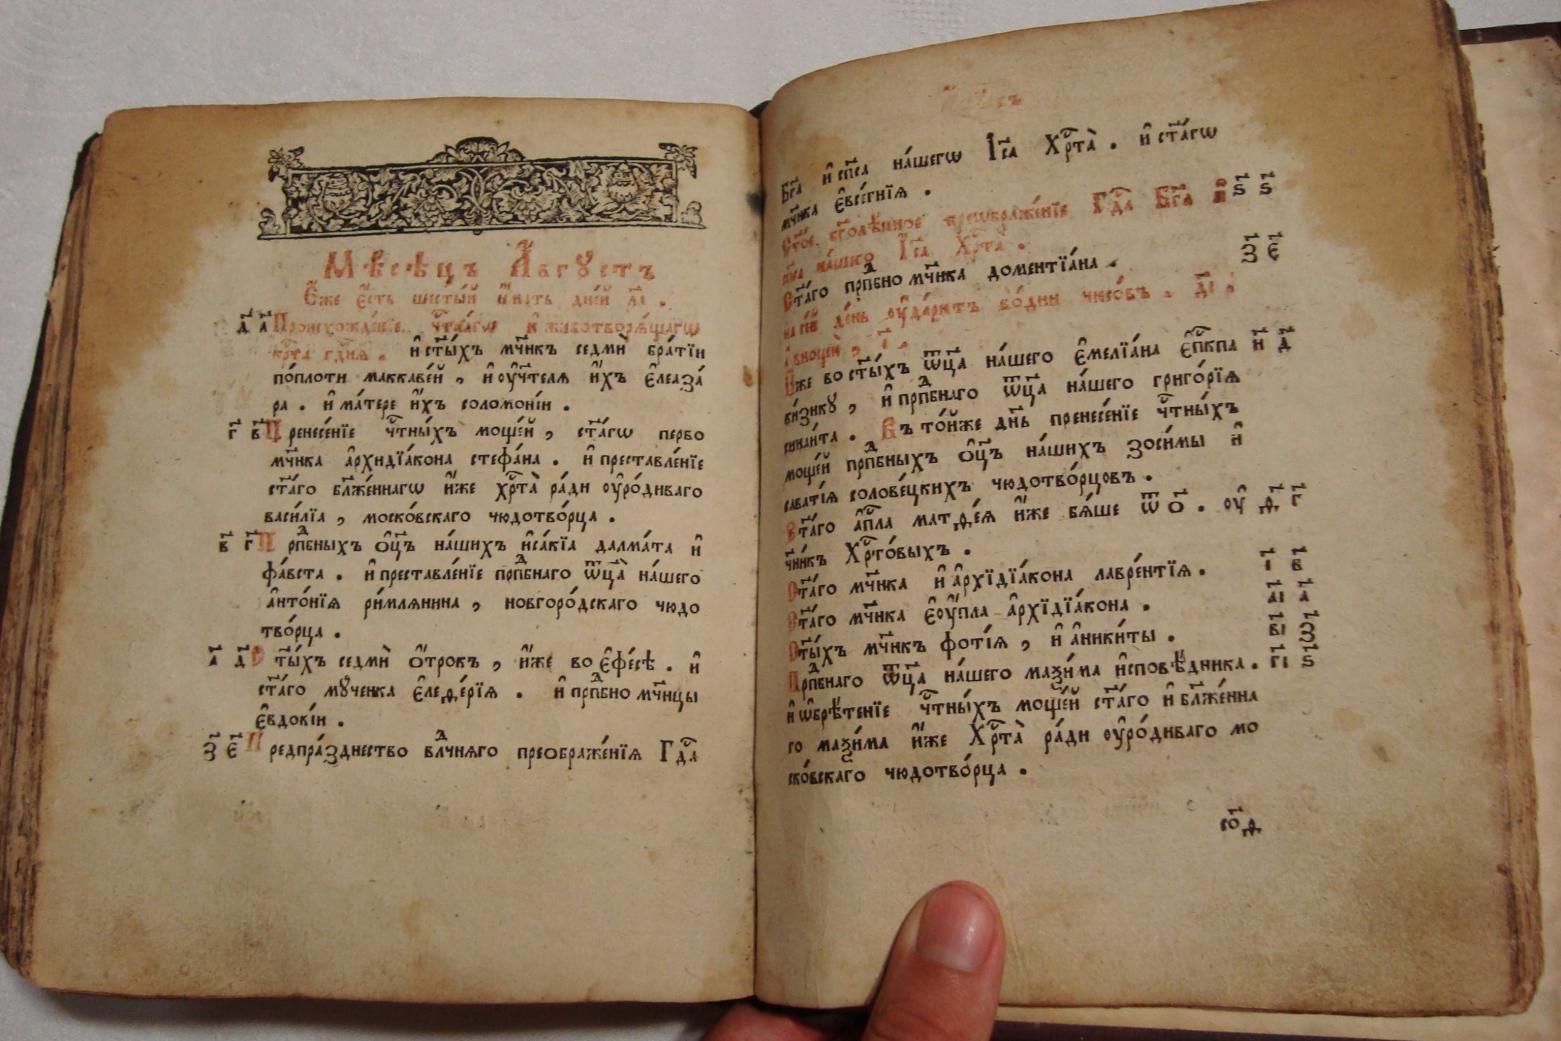 Мѣсѧцъ А҆́вгꙋстъ
Е҆́же є҆́сть шесты́й и҆́мать дне́й л҃а .
д҃ а҃ Происхожде́нїе чⷭ҇тна́гѡ и҆ животворѧ́щагѡ
крⷭ҇та̀ гдⷭ҇нѧ . и҆ ст҃ы́хъ мч҃нкъ седмѝ бра́тїи
по́плоти маккаве́й , и҆ ᲂу҆чт҃елѧ и҆́хъ є҆леаза́
ра . и҆ ма́тере и҆́хъ соломоні́и .
г҃ в҃ Пренесе́нїе чⷭ҇тны́хъ моще́й , ст҃а́гѡ перво
мч҃нка а҆рхидїа́кона стефа́на . и҆ преставле́нїе
ст҃а́го бл҃же́ннагѡ и҆́же хрⷭ҇та̀ ра́ди ᲂу҆ро́диваго
васи́лїа , моско́вскаго чюдотво́рца .
в҃ г҃ Прпⷣбныхъ ѻ҆ц҃ъ на́шихъ и҆са́кїа далма́та и҆
фа́вста . и҆ преставле́нїе прпⷣбнаго ѿц҃а̀ на́шего
а҆нто́нїѧ ри́млѧнина , новгоро́дскаго чюдо
тво́рца .
а҃ д҃ Ст҃ы́хъ седмѝ ѻ҆́трокъ , и҆́же во є҆фе́сѣ . и҆
ст҃а́го мꙋ́ченка є҆леѵѳе́рїѧ . и҆ прпⷣбно мч҃ницы
є҆ѵдокі́и .
з҃ є҃ Предпра́зднество влⷣчнѧго преѻбраже́нїѧ Гдⷭ҇а
Бг҃а и҆ сп҃са на́шегѡ І҆с҃а Хрⷭ҇та̀ . и҆ ст҃а́гѡ
мч҃нка є҆ѵсе́гнїѧ .
ѕ҃ ѕ҃ Ст҃о́е бг҃олѣ́пное преѡбраже́нїе Гдⷭ҇а Бг҃а и҆
сп҃са на́шего І҆с҃а Хрⷭ҇та̀ .
з҃ є҃ Ст҃а́го прпⷣбно мч҃нка доментїа́на .
на се́й де́нь ᲂу҆да́ритъ во́дни часо́въ . д҃і .
а҆ внощѝ , і҃ .
и҃ д҃ И҆́же во ст҃ы́хъ ѿц҃а на́шего є҆меліа́на є҆пⷭ҇кпа
ви́зикꙋ , и҆ прпⷣбнаго ѿц҃а на́шего григо́рїѧ
синаи́та . Въ то́йже дн҃ь пренесе́нїе чⷭ҇тны́хъ
моще́й прпⷣбныхъ ѻ҆ц҃ъ на́шихъ зоси́мы и҆
савати́ѧ солове́цкихъ чюдотво́рцовъ .
ѳ҃ г҃ Ст҃а́го а҆пⷭ҇ла матѳе́ѧ и҆́же бѧ́ше ѿ ѻ҃ . ᲂу҆
чн҃икъ Хрⷭ҇то́выхъ .
і҃ в҃ Ст҃а́го мч҃нка и҆ а҆рхїдїа́кона лавре́нтїѧ .
а҃і а҃ Ст҃а́го мч҃нка є҆ѵ́пла а҆рхїдїа́кона .
в҃і з҃ Ст҃ы́хъ мч҃нкъ фоті́ѧ , и҆ а҆ники́ты .
г҃і ѕ҃ Прпⷣбнаго ѿц҃а на́шего маѯи́ма и҆спові́дника .
и҆ ѡ҆брѣ́тенїе чⷭ҇тны́хъ моще́й ст҃а́го и҆ бл҃же́нна
го маѯи́ма и҆́же Хрⷭ҇та̀ ра́ди ᲂу҆ро́диваго мо
ско́вскаго чюдотво́рца .
со҃д